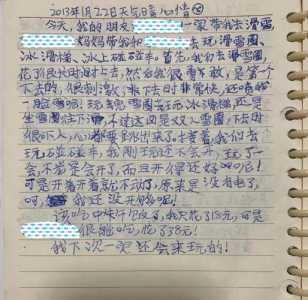 2013年1月22日天气晴心情
今天,我的朋友一家带我去滑雪,
妈妈带我和去玩滑雪圈、
冰滑梯、冰上碰碰车。首先,我们去滑雪圈,
花了很长时间才上去,然后我很勇敢,是第一个
下去的,很刺激,下去时非常快,还喷我
一脸雪呢!玩完雪圈去玩冰滑梯,还是
坐雪圈往下滑,不过这回是双人雪圈,下去时
很吓人,心都要跳出来了。接着,我们去
玩碰碰车,我刚开始还不会开,玩了一
会,不着急会开了,而且开得还好呢!
可是开着开着就不动了,原来是没有电了,
呵,我还没开够呢!
该吃中午饭了,我只花了18元,可是
很能吃,花了38元!
我下次一定还会来玩的!